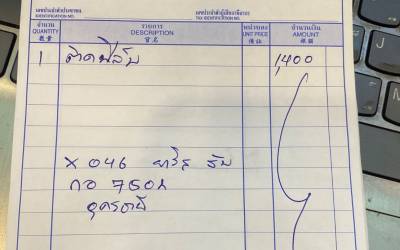 เลขประจำตัวประชาชน
IDENTIFICATION NO.
เลขประจำตัวผู้เสียภาษีอากร
TAX IDENTIFICATION NO.
จำนวน
QUANTITY
數 量
รายการ
DESCRIPTION
貨 名
หน่วยละ
UNIT PRICE
價 格
จำนวนเงิน
AMOUNT
銀 額
1 ติดฟิล์ม 1,400
X 046
กอ 7504
อุดรธานี